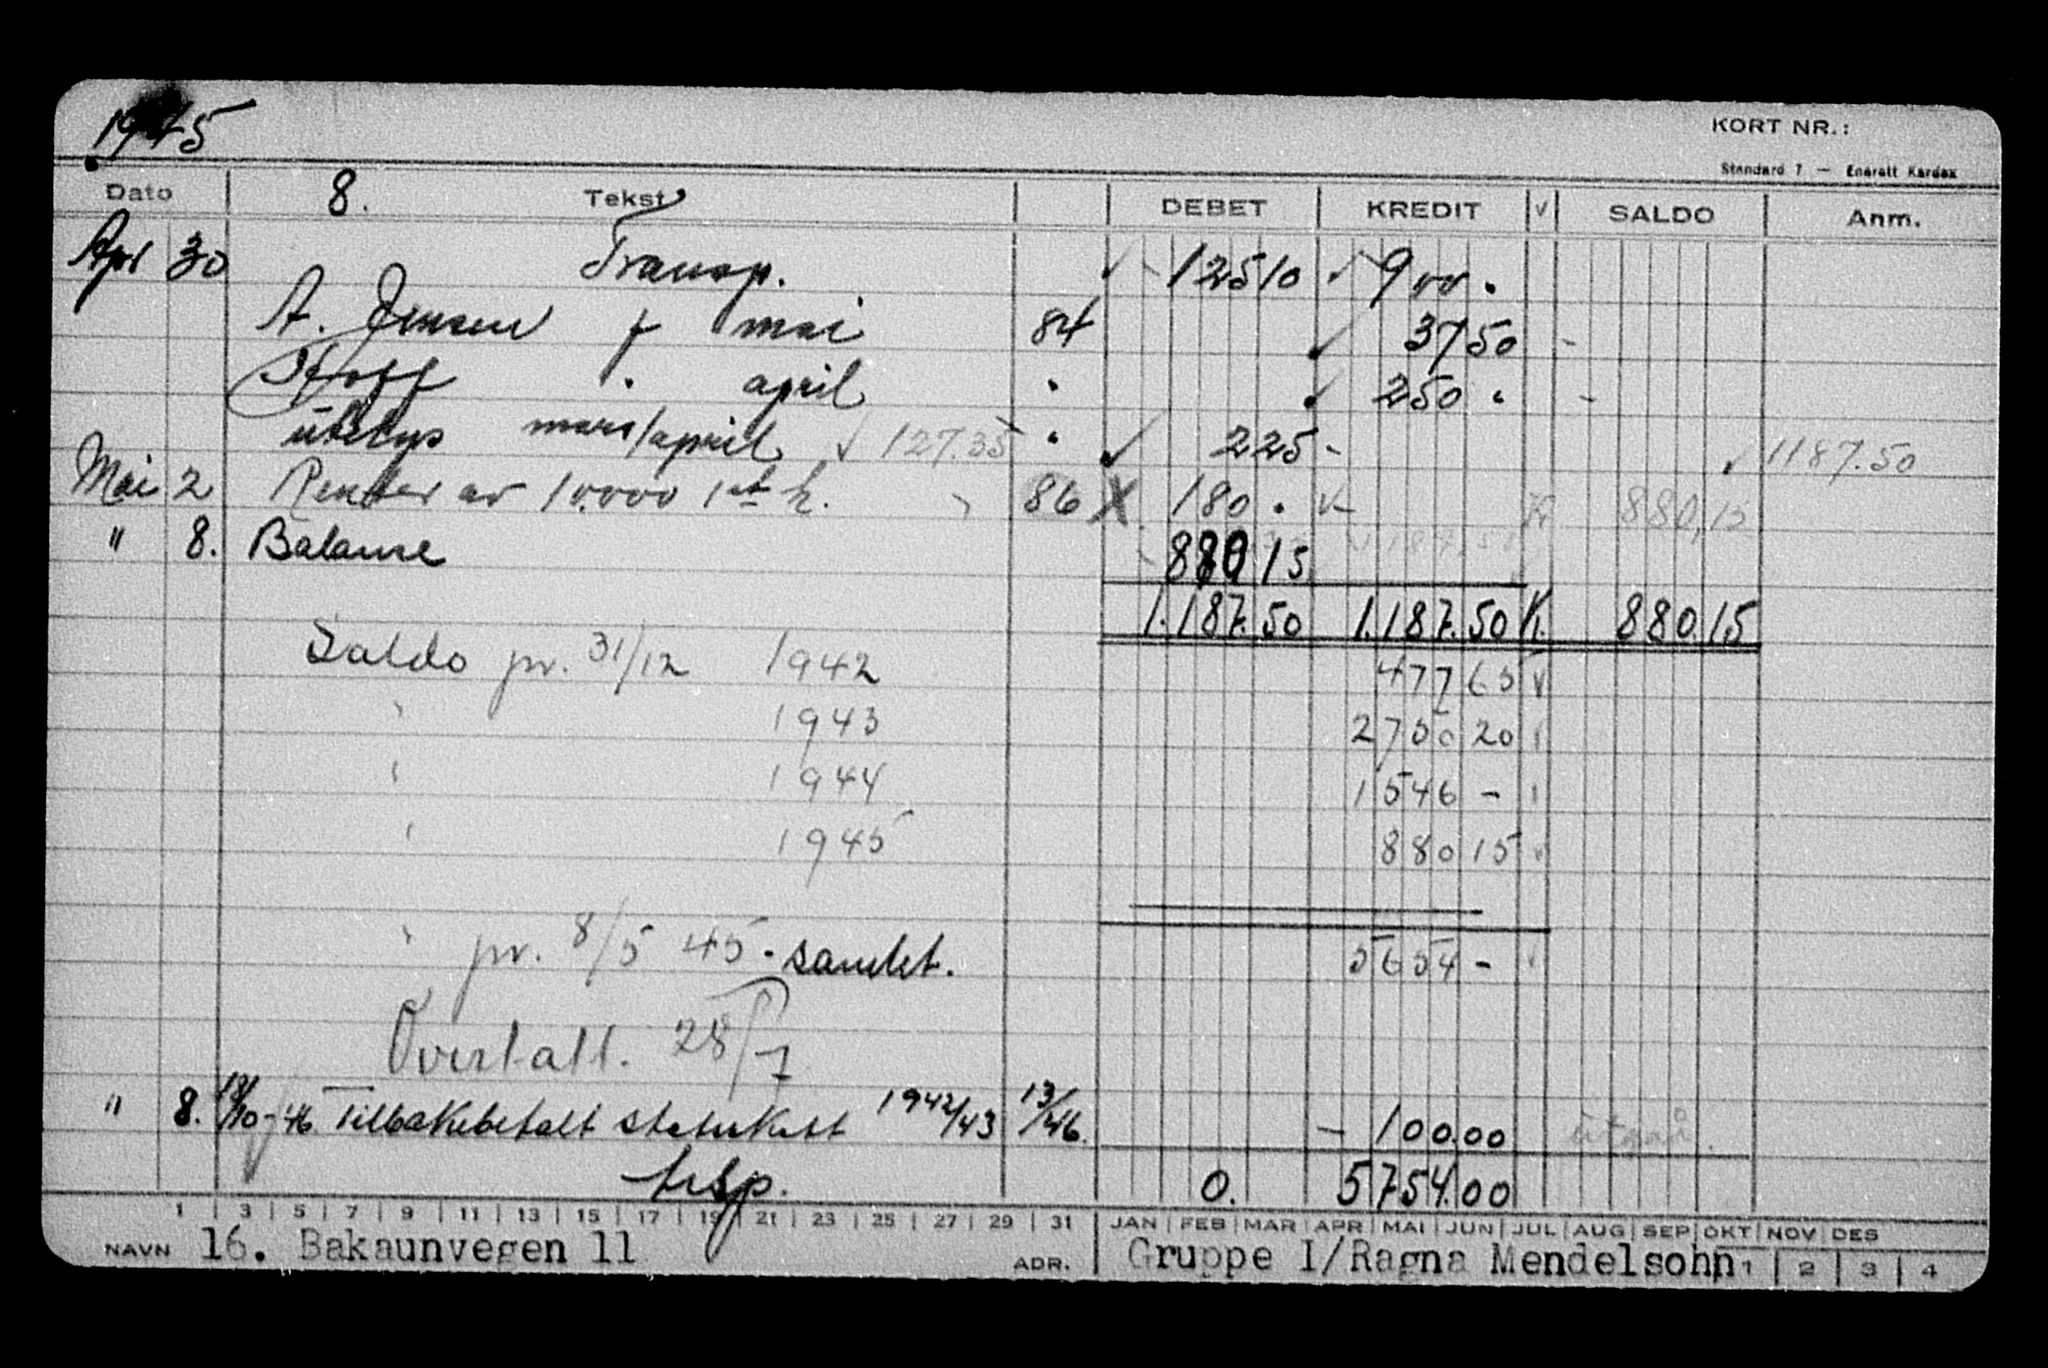 1945
KORT NR.:
Standard 7 — Eneratt Kardex
Dato 8. Tekst DEBET KREDIT V SALDO Anm.
Apr 30 Transp. 125 10 900 .
A. Jensen f mai 84 37 50
Hoff " april " 250 .
mars/april 127.35 " 225 - 1187.50
Mai 2 Renter av 10.000 1st h. 86 X 180 . 880,15
" 8. Balanse 880 15 1187.50
1.187.50 1.187.50 K. 880 15
Saldo pr. 31/12 1942 477 65
" 1943 2750 20
" 1944 1546 -
" 1945 880 15
" pr. 8/5 45 . samlet. 5654 -
Overtatt. 28/7
" 8. 18/10-46 Tilbakebetalt 1942/43 13/46. - 100.00 utgår.
0. 5754.00
1 3 5 7 9 11 13 15 17 19 21 23 25 27 29 31 JAN FEB MAR APR MAI JUN JUL AUG SEP OKT NOV DES
NAVN 16. Bakaunvegen 11 ADR. Gruppe I/Ragna Mendelsohn 1 2 3 4